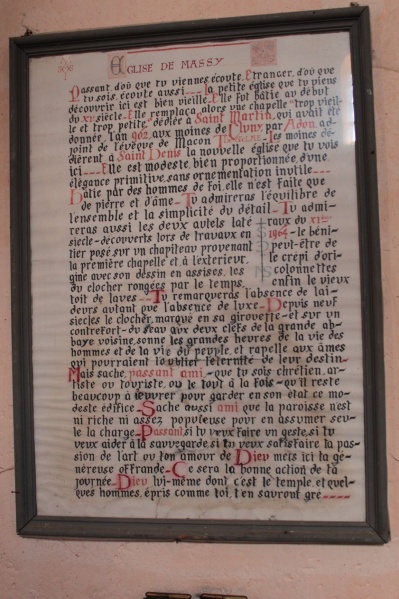 Eglise de Massy
Passant, d'où que tu viennes écoute, Etranger, d'où que
tu sois, écoute aussi --- la petite église que tu viens
découvrir ici est bien vieille. Elle fut bâtie au début
du XIe siècle. Elle remplaça alors une chapelle "trop vieil-
le et trop petite" dédiée à Saint Martin, qui avait été
donnée, l'an 902, aux moines de Cluny, par Adon, ad-
joint de l'évêque de Macon les moines dé-
dièrent à Saint Denis la nouvelle église que tu vois
ici --- Elle est modeste, bien proportionnée, d'une
élégance primitive, sans ornementation inutile ---
Bâtie par des hommes de foi, elle n'est faite que
de pierre et d'âme - Tu admireras l'équilibre de
l'ensemble et la simplicité du détail - Tu admi-
reras aussi les deux autels laté raux du XIème
siècle - découverts lors de travaux en 1964 - le béni-
tier posé sur un chapiteau provenant peut-être de
la première chapelle et à l'extérieur, le crépi d'ori-
gine avec son dessin en assises, les colonnettes
du clocher rongées par le temps, enfin le vieux
toit de laves -- Tu remarqueras l'absence de lai-
deurs autant que l'absence de luxe - Depuis neuf
siècles le clocher, marqué en sa girouette - et sur un
contrefort - du seau aux deux clefs de la grande ab-
baye voisine, sonne les grandes heures de la vie des
hommes et de la vie du peuple, et rappelle aux âmes
qui pourraient l'oublier l'éternité de leur destin -
Mais sache, passant ami, - que tu sois chrétien, ar-
tiste ou touriste, ou le tout à la fois - qu'il reste
beaucoup à œuvrer pour garder en son état ce mo-
deste édifice - Sache aussi ami que la paroisse n'est
ni riche ni assez populeuse pour en assumer seu-
le la charge - Passant si tu veux faire un geste, si tu
veux aider à la sauvegarde, si tu veux satisfaire ta pas-
sion de l'art ou ton amour de Dieu mets ici ta gé-
néreuse offrande - Ce sera la bonne action de ta
journée - Dieu lui-même dont c'est le temple, et quel-
ques hommes, épris comme toi, t'en sauront gré ----